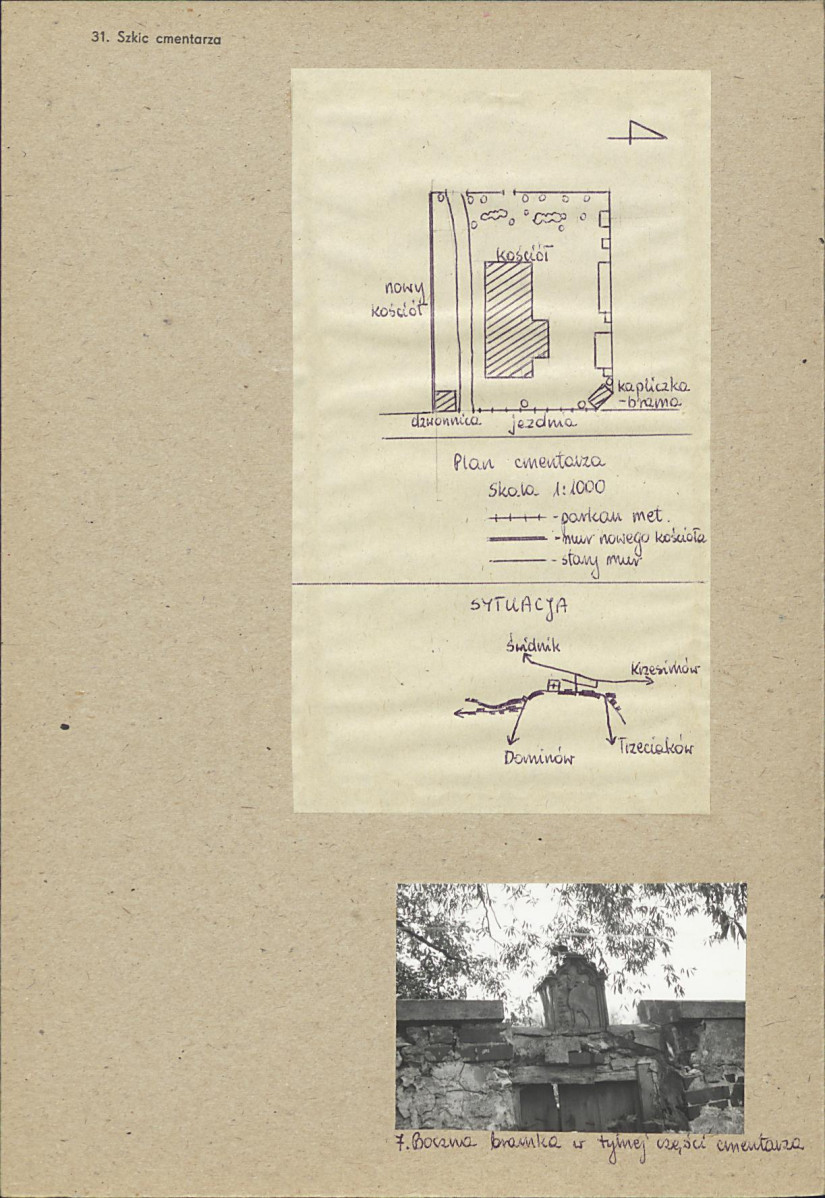 31. Szkic cmentarza
kościół
nowy
kościół
kapliczka
-brama
dzwonnica
jezdnia
Plan cmentarza
Skala 1:1000
- parkan met.
- mur nowego kościoła
- stary mur
SYTUACJA
Świdnik
Krzesimów
Dominów
Trzeciaków
7. Boczna bramka w tylnej części cmentarza